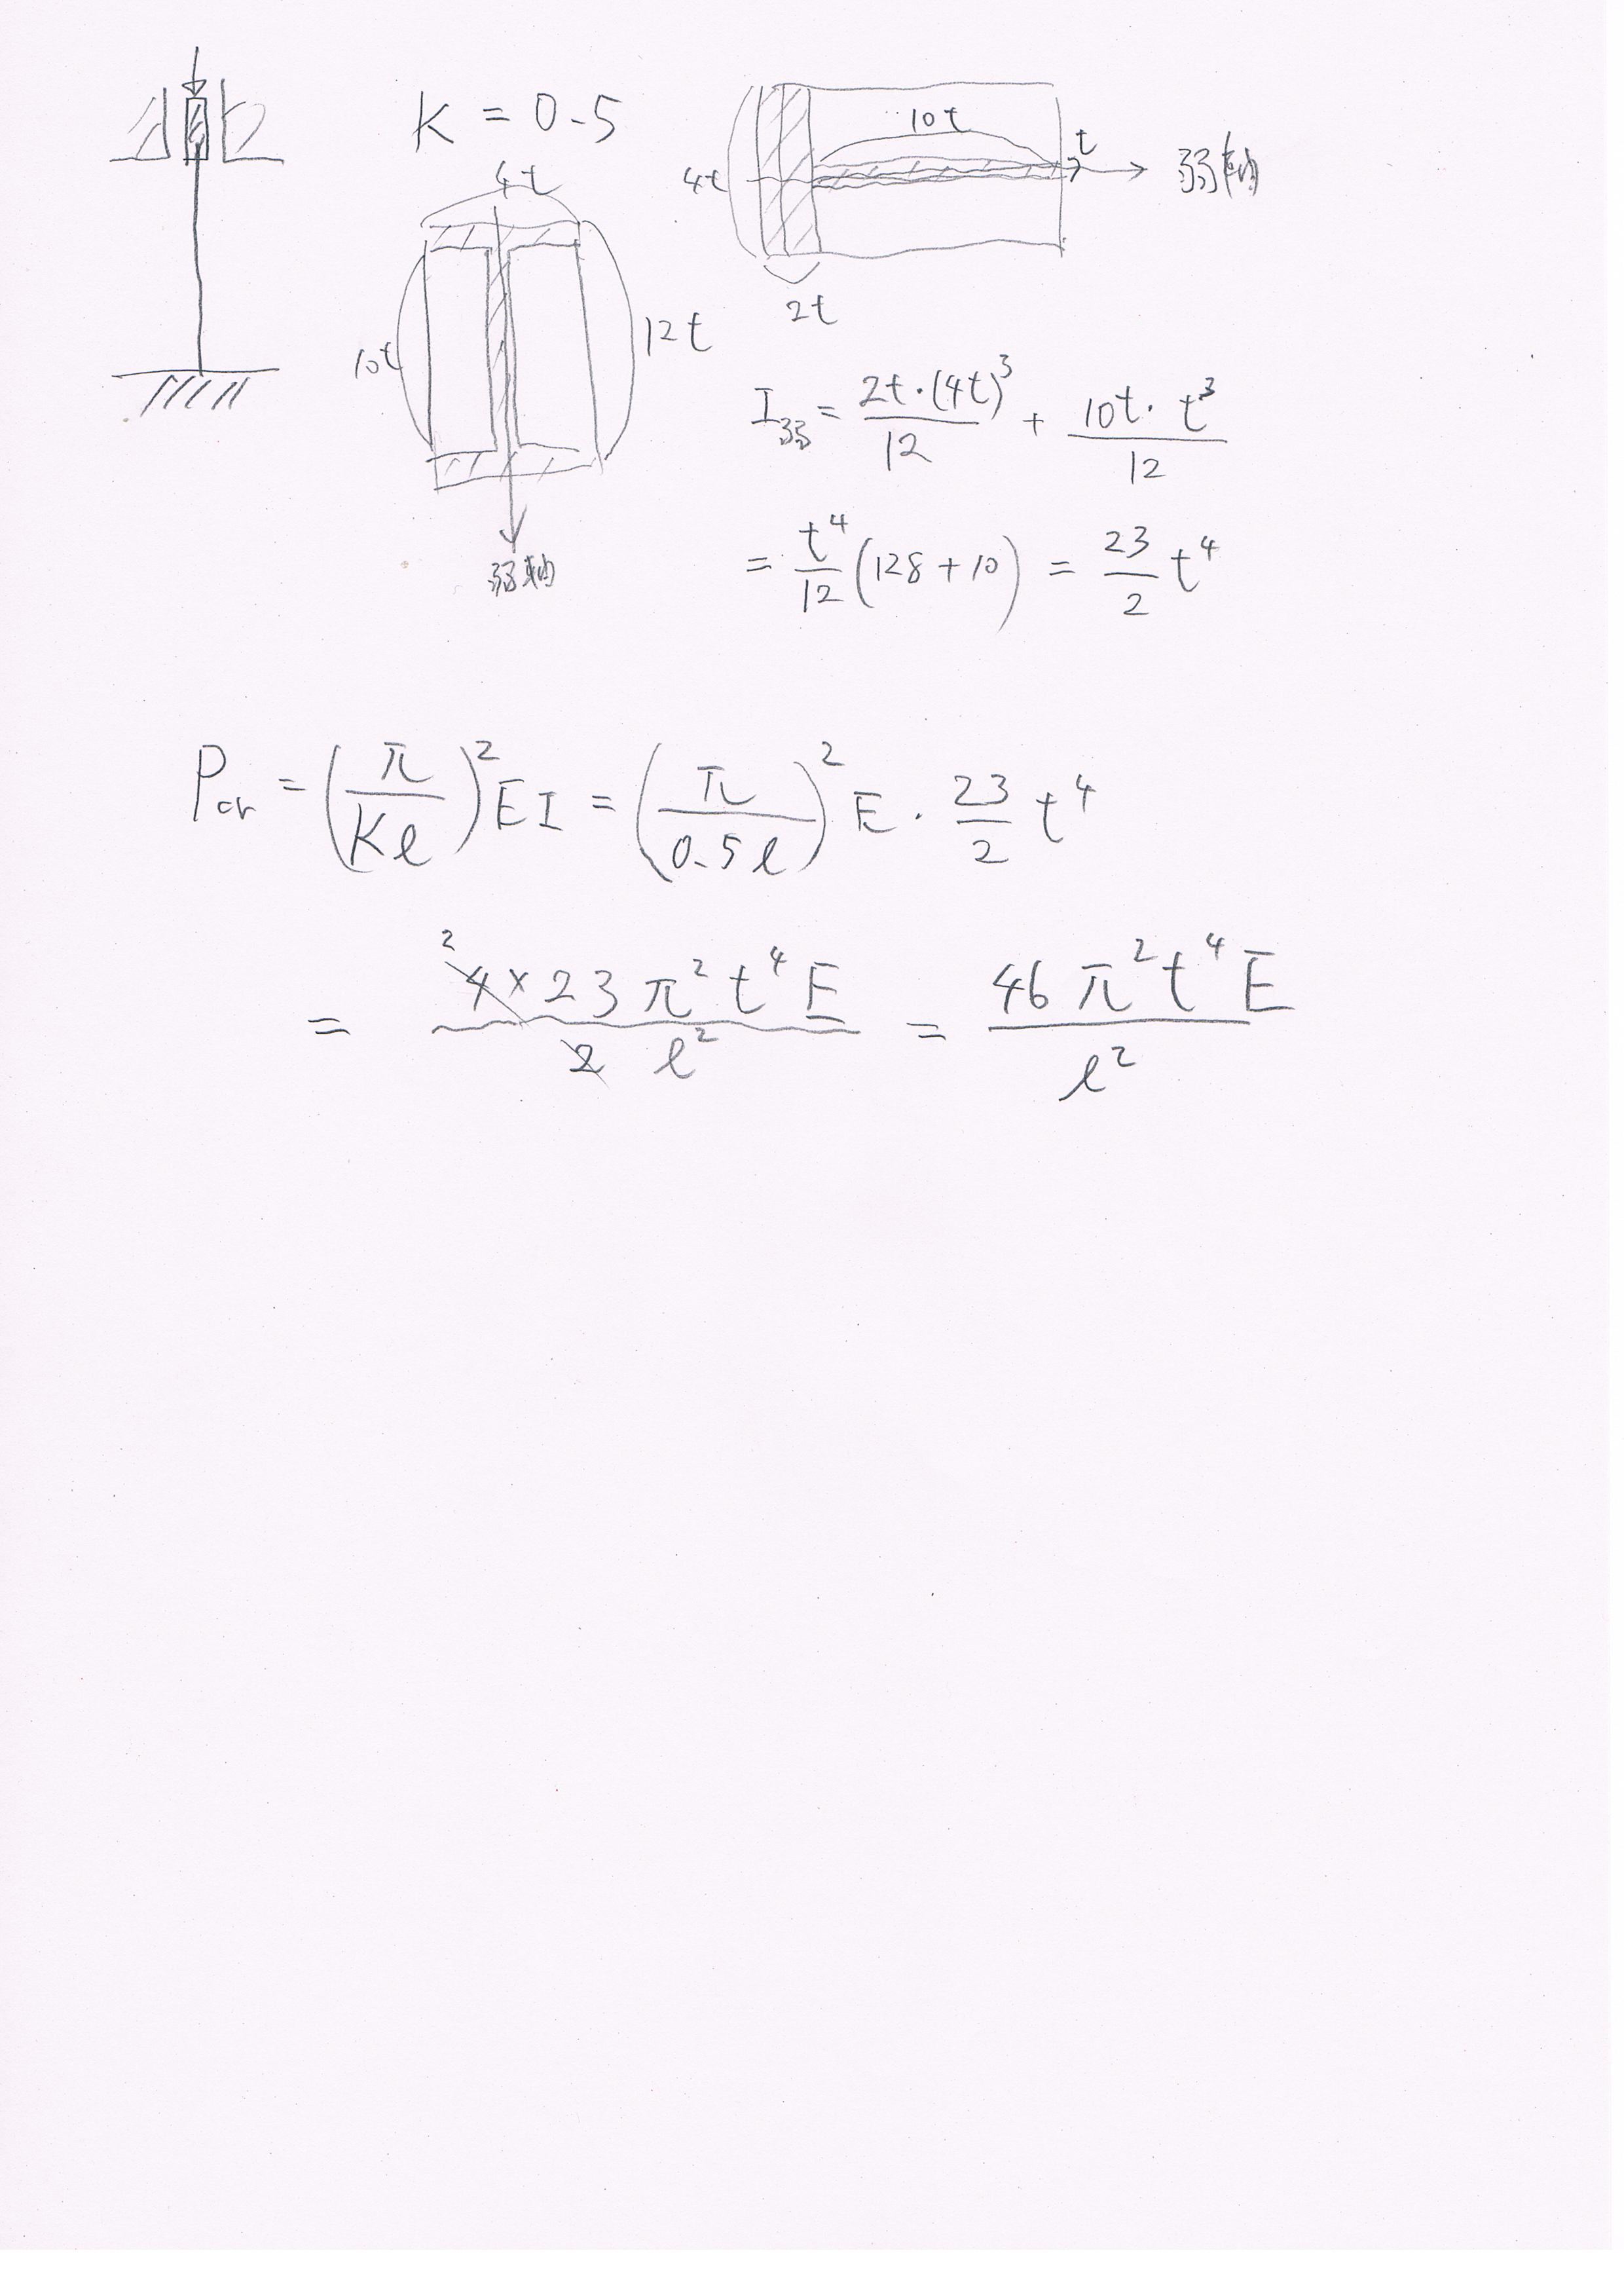 K = 0.5
4t
10t
12t
弱軸
10t
t
4t
弱軸
2t
I弱 = 2t·(4t)³/12 + 10t·t³/12
= t⁴/12 (128+10) = 23/2 t⁴
Pcr = (π/Kℓ)² EI = (π/0.5ℓ)² E · 23/2 t⁴
= 4×23π²t⁴E/2ℓ² = 46π²t⁴E/ℓ²
2